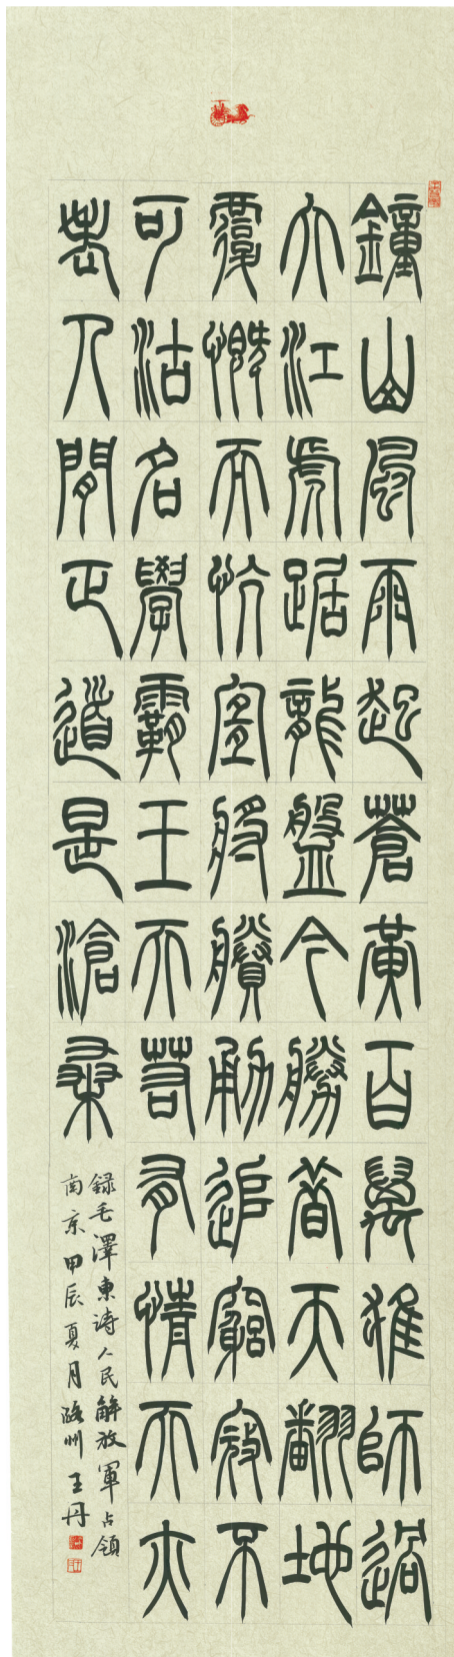 鐘山風雨起蒼黃百萬雄師過
大江虎踞龍盤今勝昔天翻地
覆慨而忼宜將賸勇追窮寇不
可沽名學霸王天若有情天亦
老人間正道是滄桑
録毛澤東詩人民解放軍占領
南京甲辰夏月潞州王丹